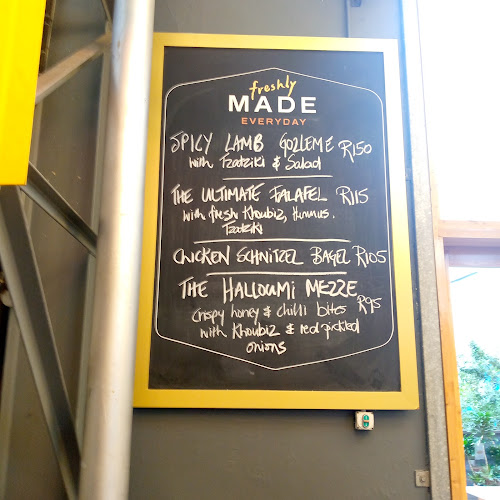 freshly
MADE
EVERYDAY
SPICY LAMB GOZLEME R150
with Tzatziki & Salad
THE ULTIMATE FALAFEL R115
with fresh Khoubiz, Hummus.
Tzatziki
CHICKEN SCHNITZEL BAGEL R105
THE HALLOUMI MEZZE
Crispy honey & chilli bites R95
with Khoubiz & red pickled
onions